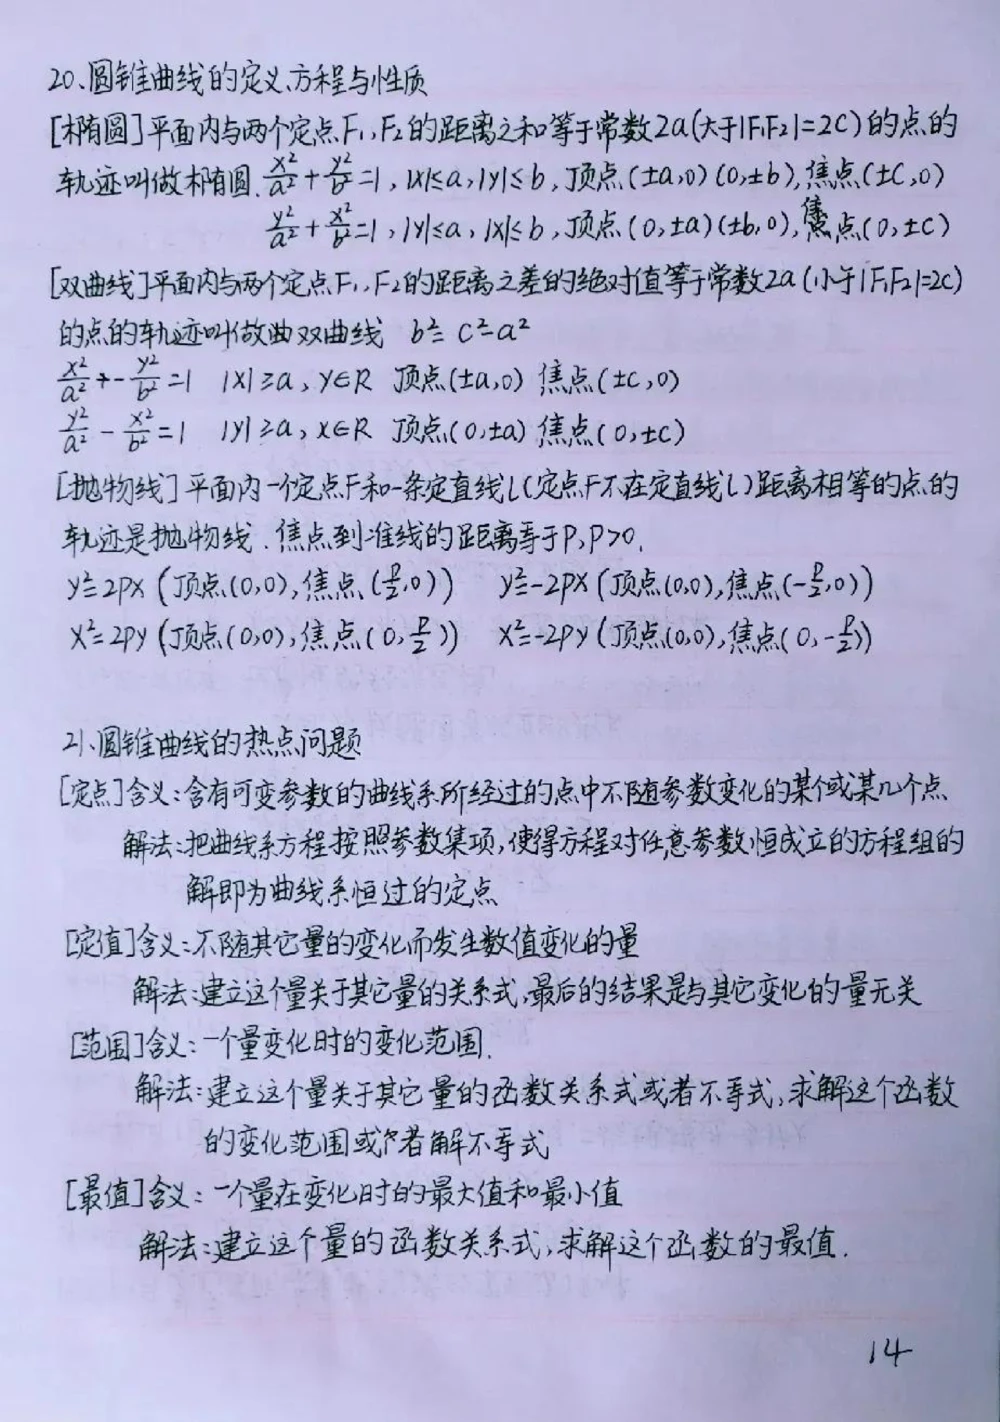 20、圆锥曲线的定义、方程与性质
[椭圆]平面内与两个定点F₁,F₂的距离之和等于常数2a(大于|F₁F₂|=2c)的点的
轨迹叫做椭圆. x²/a²+y²/b²=1,|x|≤a,|y|≤b,顶点(±a,0)(0,±b),焦点(±c,0)
y²/a²+x²/b²=1,|y|≤a,|x|≤b,顶点(0,±a)(±b,0),焦点(0,±c)
[双曲线]平面内与两个定点F₁,F₂的距离之差的绝对值等于常数2a(小于|F₁F₂|=2c)
的点的轨迹叫做曲双曲线 b²=c²-a²
x²/a²+-y²/b²=1 |x|≥a,y∈R 顶点(±a,0) 焦点(±c,0)
y²/a²-x²/b²=1 |y|≥a,x∈R 顶点(0,±a) 焦点(0,±c)
[抛物线]平面内一个定点F和一条定直线l(定点F不在定直线l)距离相等的点的
轨迹是抛物线.焦点到准线的距离等于P,P>0.
y²=2px(顶点(0,0),焦点(p/2,0)) y²=-2px(顶点(0,0),焦点(-p/2,0))
x²=2py(顶点(0,0),焦点(0,p/2)) x²=-2py(顶点(0,0),焦点(0,-p/2))
21、圆锥曲线的热点问题
[定点]含义:含有可变参数的曲线系所经过的点中不随参数变化的某个或某几个点
解法:把曲线系方程按照参数集项,使得方程对任意参数恒成立的方程组的
解即为曲线系恒过的定点
[定值]含义:不随其它量的变化而发生数值变化的量
解法:建立这个量关于其它量的关系式,最后的结果是与其它变化的量无关
[范围]含义:一个量变化时的变化范围.
解法:建立这个量关于其它量的函数关系式或者不等式,求解这个函数
的变化范围或者解不等式
[最值]含义:一个量在变化时的最大值和最小值
解法:建立这个量的函数关系式,求解这个函数的最值.
14